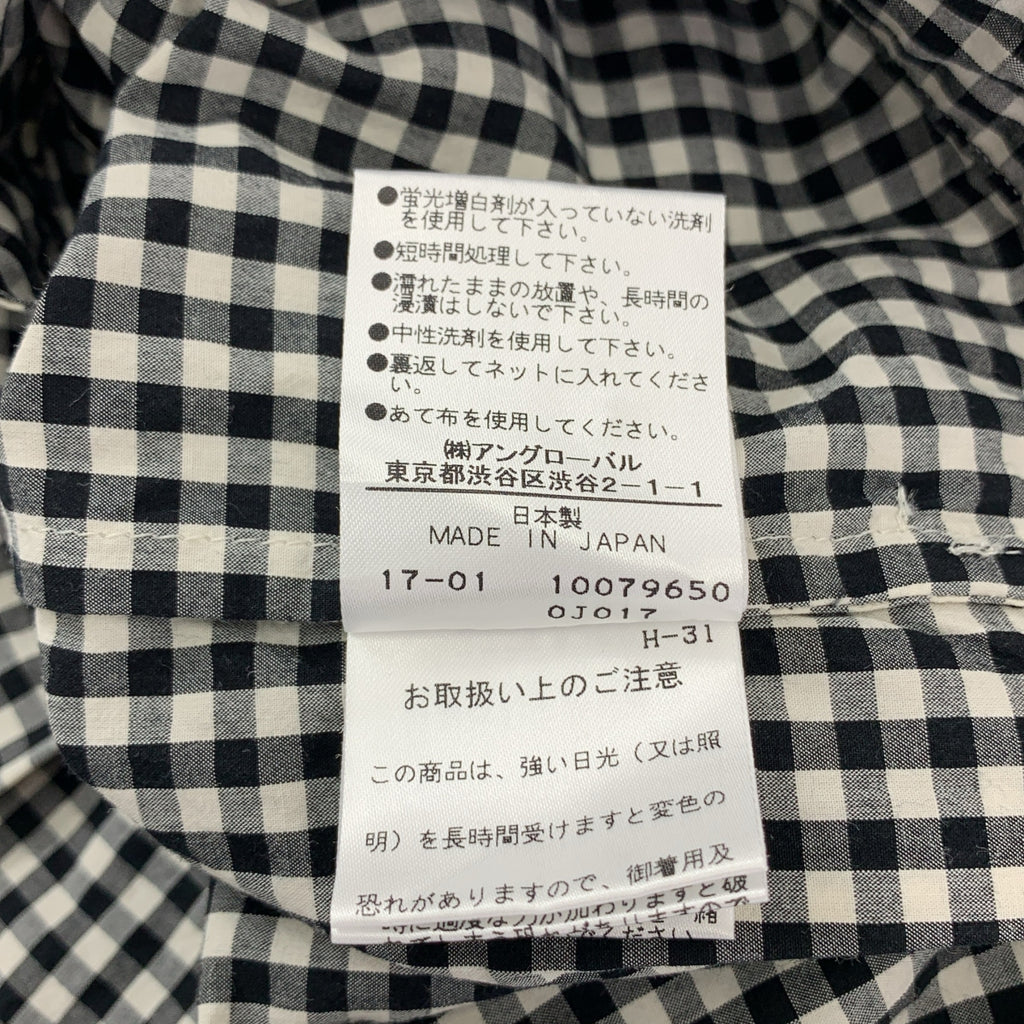 ●蛍光増白剤が入っていない洗剤
を使用して下さい。
●短時間処理して下さい。
●濡れたままの放置や、長時間の
浸漬はしないで下さい。
●中性洗剤を使用して下さい。
●裏返してネットに入れてくださ
い。
●あて布を使用してください。
㈱アングローバル
東京都渋谷区渋谷2-1-1
日本製
MADE IN JAPAN
17-01 10079650
0J017
H-31
お取扱い上のご注意
この商品は、強い日光（又は照
明）を長時間受けますと変色の
恐れがありますので、御着用及
加わりますと破